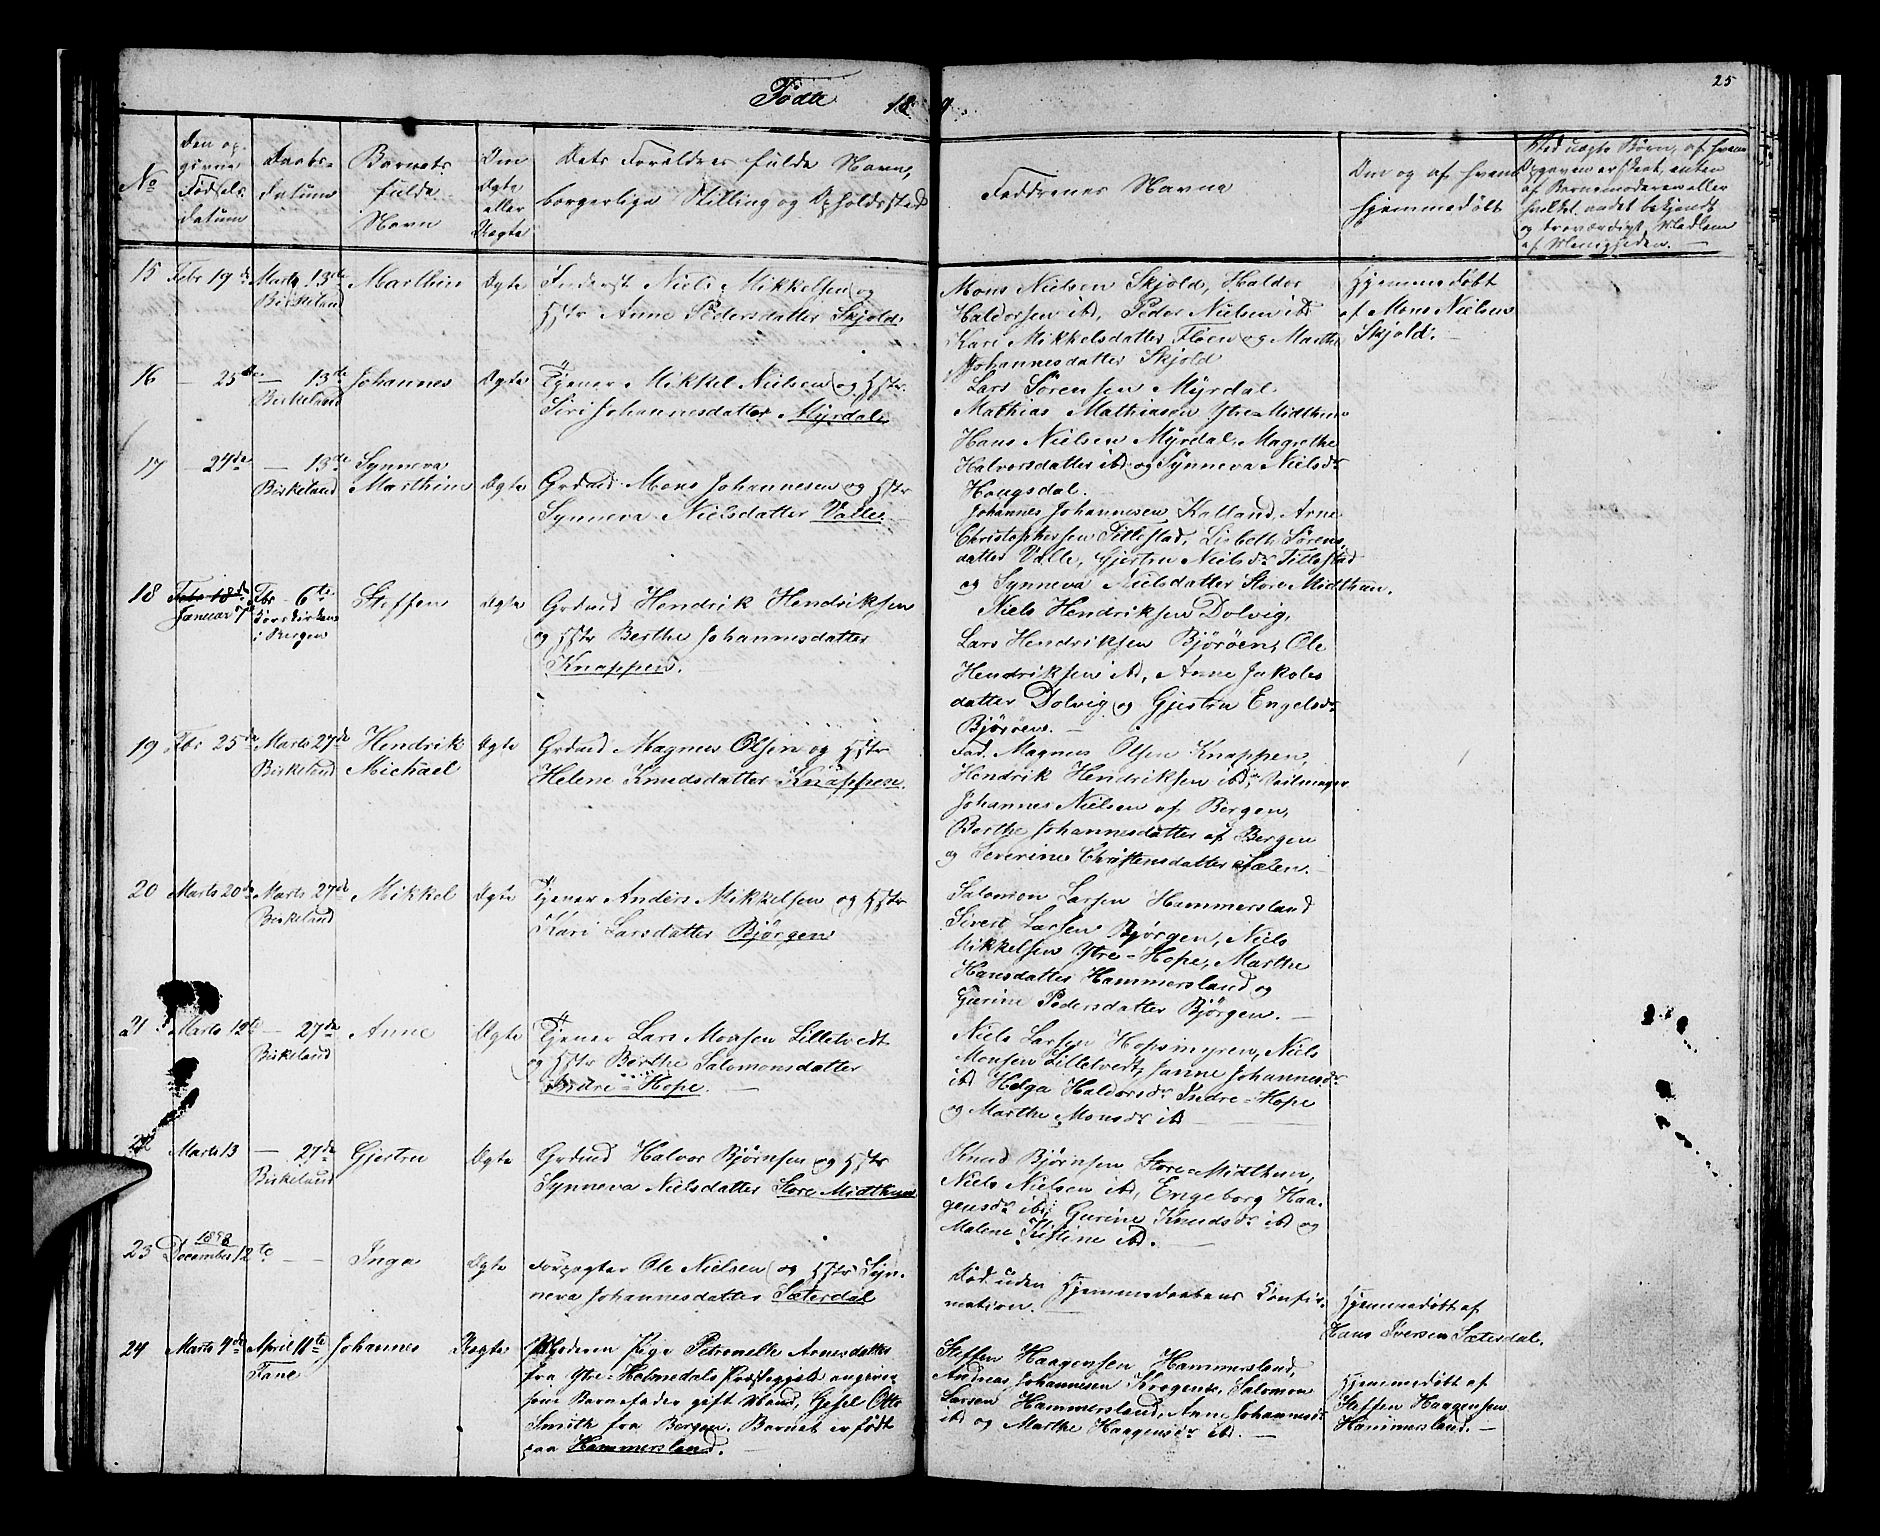 25
Fødte 18 9.
No
Den op-
givne
Fødsels-
datum
Daabs-
datum
Barnets
fulde
Navn
Om
Ægte
eller
Uægte
Dets Forældres fulde Navn,
borgerlige Stilling og Opholdssted
Faddrenes Navne
Om og af hvem
hjemmedøbt
Ved uægte Børn, af hvem
Opgaven er skeet, enten
af Barnemoderen eller
hvilket andet bekjendt
og troværdigt Medlem
af Menigheden.
15 Febr 19de Marts 13de Birkeland Marthin Ægte
Inderst Niels Mikkelsen og
Hstr Anne Pedersdatter Skjold.
Mons Nielsen Skjold, Haldor
Haldorsen ibd, Peder Nielsen ibd
Kari Mikkelsdatter Fløen og Marthe
Johannesdatter Skjold
Hjemmedøbt
af Mons Nielsen
Skjold.
16 — 25de — 13de Birkeland Johannes Ægte
Tjener Mikkel Nielsen og Hstr
Siri Johannesdatter Myrdal
Lars Sørensen Myrdal
Mathias Mathiasen Ytre-Midthun
Hans Nielsen Myrdal, Magrethe
Halvorsdatter ibd og Synneva Nielsdr
Hougsdal.
17 — 24de — 13de Birkeland Synneva Marthine Ægte
Grdmd Mons Johannesen og Hstr
Synneva Nielsdatter Valle.
Johannes Johannesen Kalland, Arne
Christophersen Tillestad, Lisbeth Sørens-
datter Valle, Gjertru Nielsdr Tillestad
og Synneva Nielsdatter Store Midthun.
18 Febr 18de Januar 7 Fbr 6te Korskirken i Bergen Steffen Ægte
Grdmd Hendrik Hendriksen
og Hstr Berthe Johannesdatter
Knappen.
Niels Hendriksen Dolvig,
Lars Hendriksen Bjørøen, Ole
Hendriksen ibd, Anne Jakobs
datter Dolvig og Gjertru Engelsdr
Bjørøen.
19 Fbr 25de Marts 27de Birkeland Hendrik Michael Ægte
Grdmd Magnus Olsen og Hstr
Helene Knudsdatter Knappen.
Fad. Magnus Olsen Knappen,
Hendrik Hendriksen ibd, Seilmager
Johannes Nielsen af Bergen,
Berthe Johannesdatter af Bergen
og Severine Christensdatter Sælen.
20 Marts 20de Marts 27de Birkeland Mikkel Ægte
Tjener Anders Mikkelsen og Hstr
Kari Larsdatter Bjørgen
Salomon Larsen Hammersland
Sivert Larsen Bjørgen, Niels
Mikkelsen Ytre-Hope, Marthe
Hansdatter Hammersland og
Gurine Pedersdatter Bjørgen.
21 Marts 12te — 27de Birkeland Anne Ægte
Tjener Lars Monsen Lilletvedt
og Hstr Berthe Salomonsdatter
Indre-Hope.
Niels Larsen Hopsmyren, Niels
Monsen Lilletvedt, Janne Johannesdr
ibd Helga Haldorsdr Indre-Hope
og Marthe Monsdr ibd
22 Marts 13 — 27de Birkeland Gjertru Ægte
Grdmd Halvor Bjørnsen og Hstr
Synneva Nielsdatter Store Midthun
Knud Bjørnsen Store-Midthun,
Niels Nielsen ibd, Engeborg Haa-
gensdr ibd, Gurine Knudsdr ibd og
Malene Kistine ibd.
23 1858 December 12te — Inga Ægte
Forpagter Ole Nielsen og Hstr Syn-
neva Johannesdatter Sæterdal
Død uden Hjemmedaabens Confir-
mation.
Hjemmedøbt af
Hans Iversen Sætesdal.
24 Marts 4de April 11te Fane Johannes Uægte
Moderen Pige Petronelle Arnesdatter
fra Ytre-Holmedals Præstegjeld angiver
som Barnefader gift Mand, Gesel Otto
Smith fra Bergen. Barnet er født
paa Hammersland.
Steffen Haagensen Hammersland,
Andreas Johannesen Krogenes, Salomon
Larsen Hammersland, Anne Johannesdr
ibd og Marthe Haagensdr ibd.
Hjemmedøbt af
Steffen Haagensen
Hammersland.